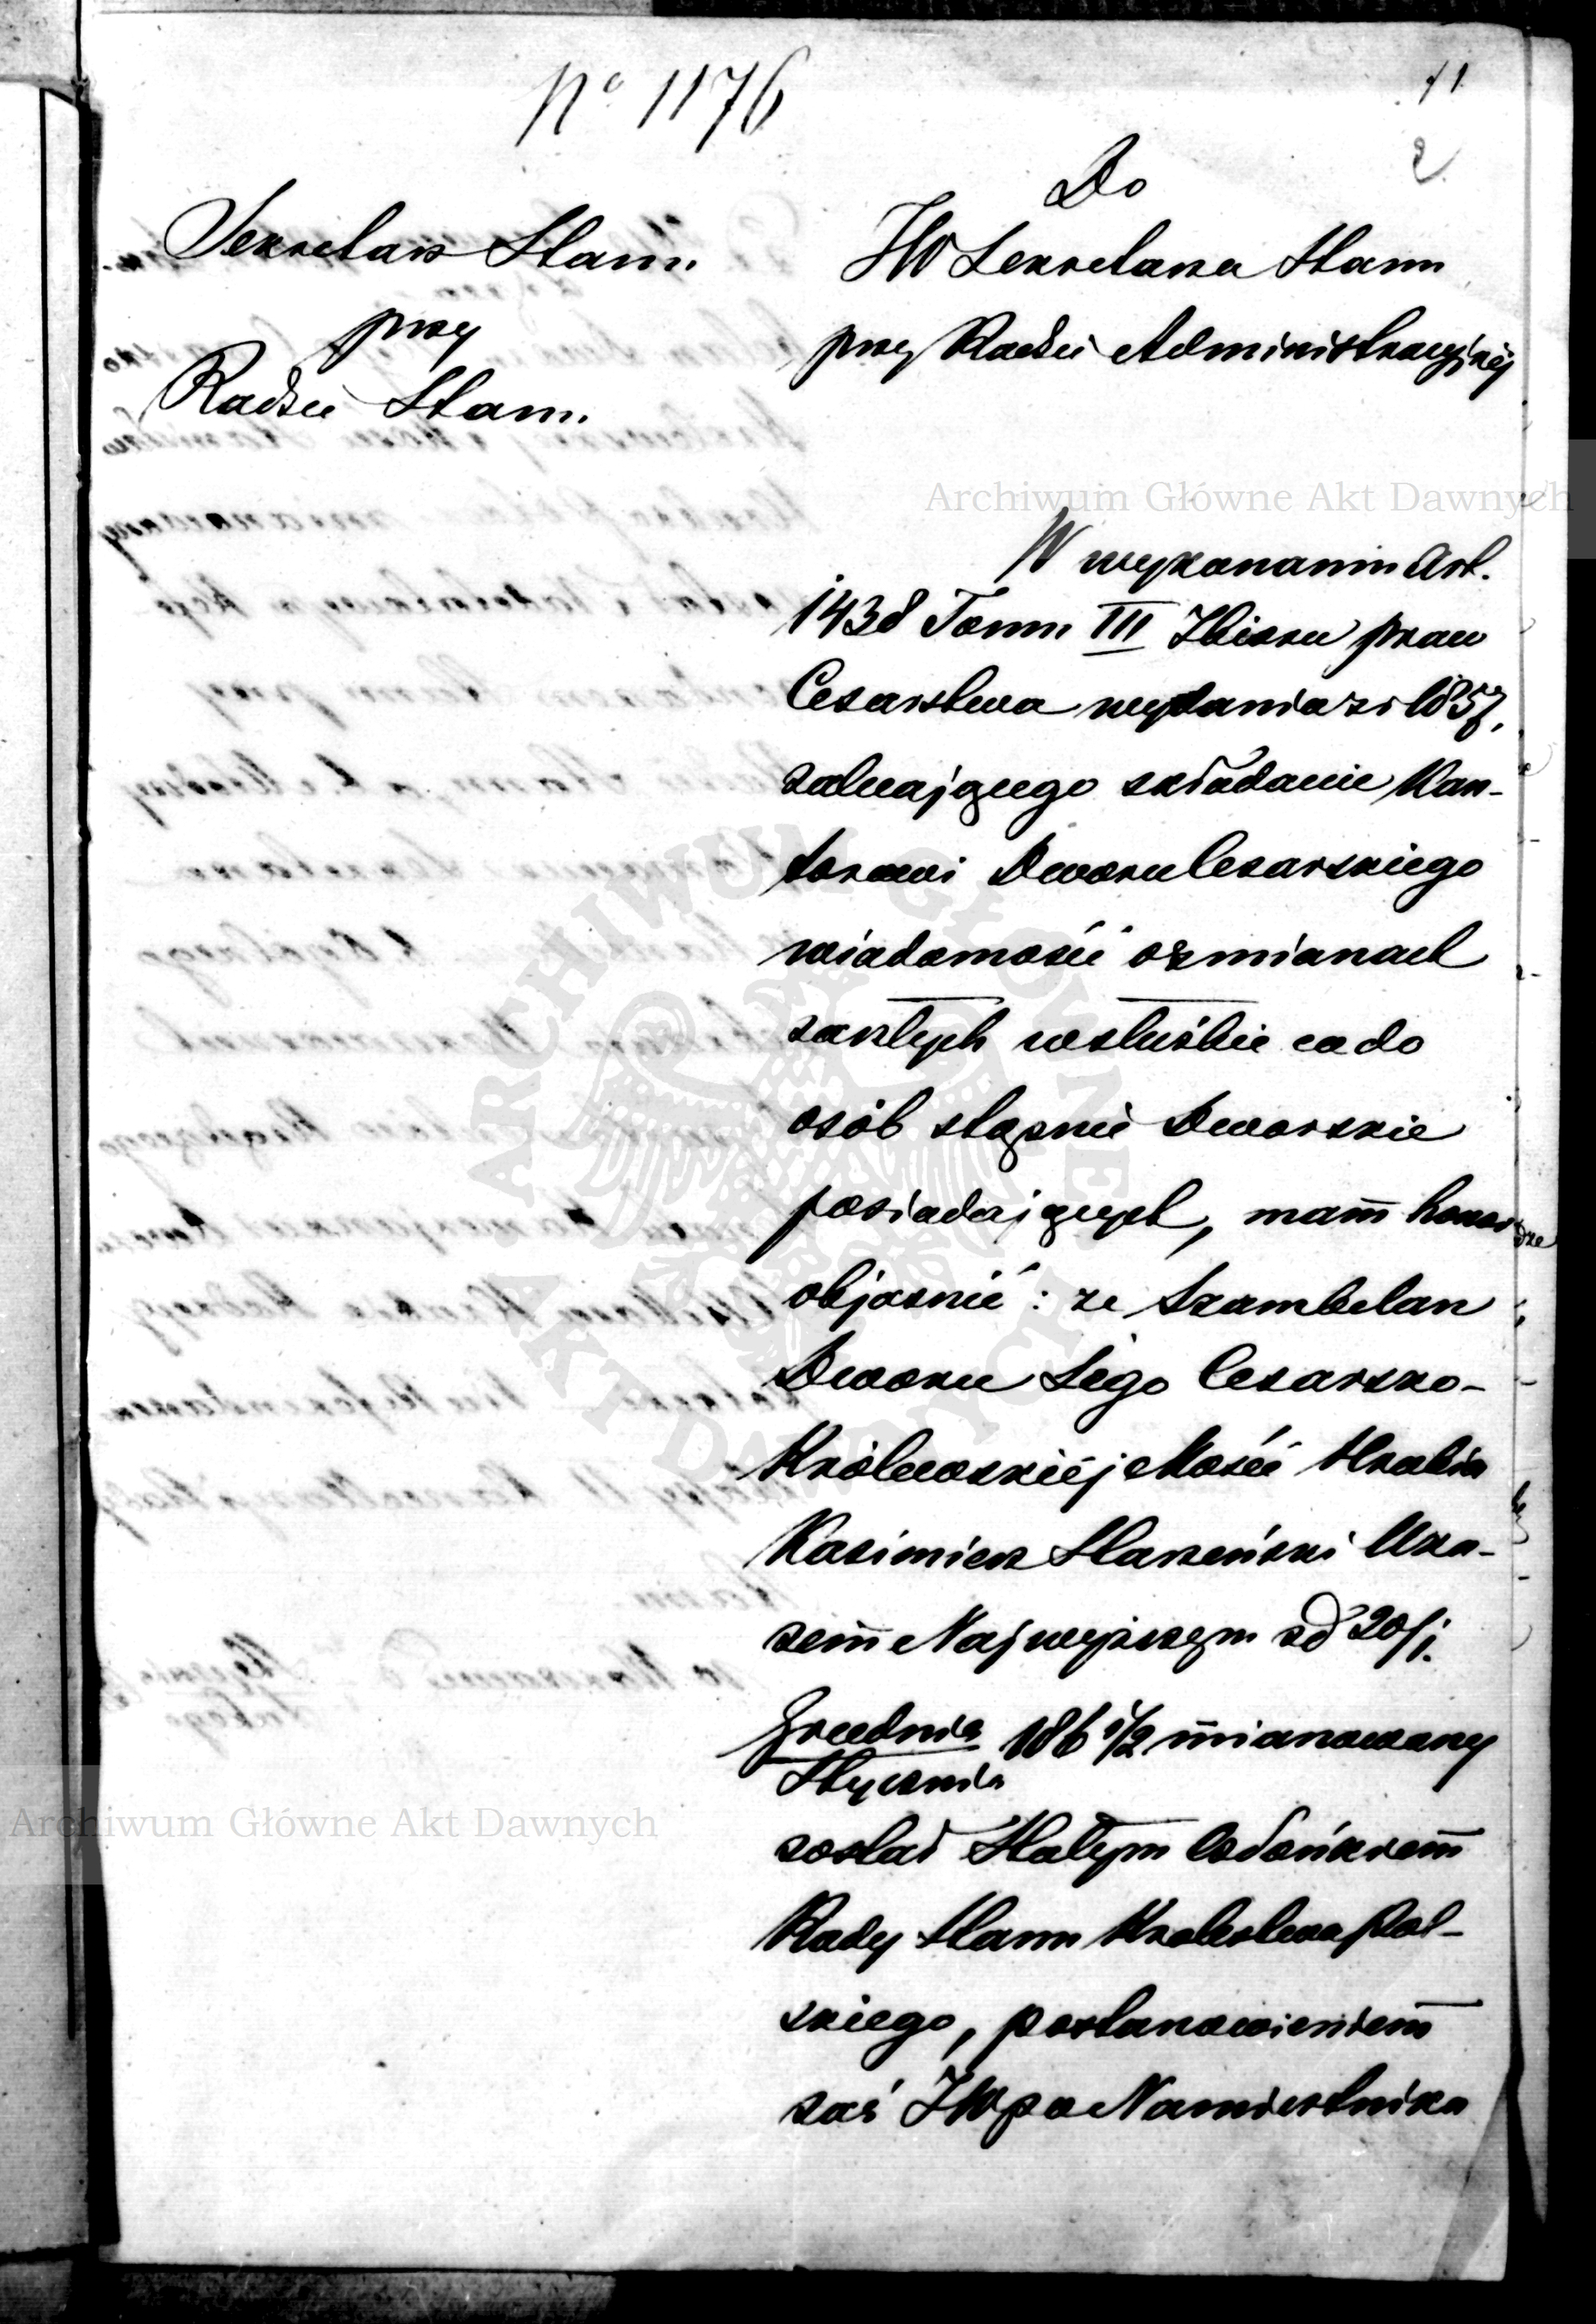 No 1176
11
2
Sekretarz Stanu
przy
Radzie Stanu.
Do
JW Sekretarza Stanu
przy Radzie Administracyjnéj
Archiwum Główne Akt Dawnych
W wykonaniu Art.
1438 Tomu III Zbioru praw
Cesarstwa wydania z r 1857,
zalecającego składanie Kan-
torowi Dworu Cesarskiego
wiadomości o zmianach
zaszłych w służbie co do
osób stopnie Dworskie
posiadających, mam honor
objaśnić: że Szambelan
Dworu Jego Cesarsko-
Królewskiéj Mości Hrabia
Kazimierz Starzeński Uka-
zem Najwyższym z d 20/1.
Grudnia 186 1/2 mianowany
Stycznia
został Stałym Członkiem
Rady Stanu Królestwa Pol-
skiego, postanowieniem
zaś JW po Namiestnika
ARCHIWUM GŁÓWNE AKT DAWNYCH
Archiwum Główne Akt Dawnych